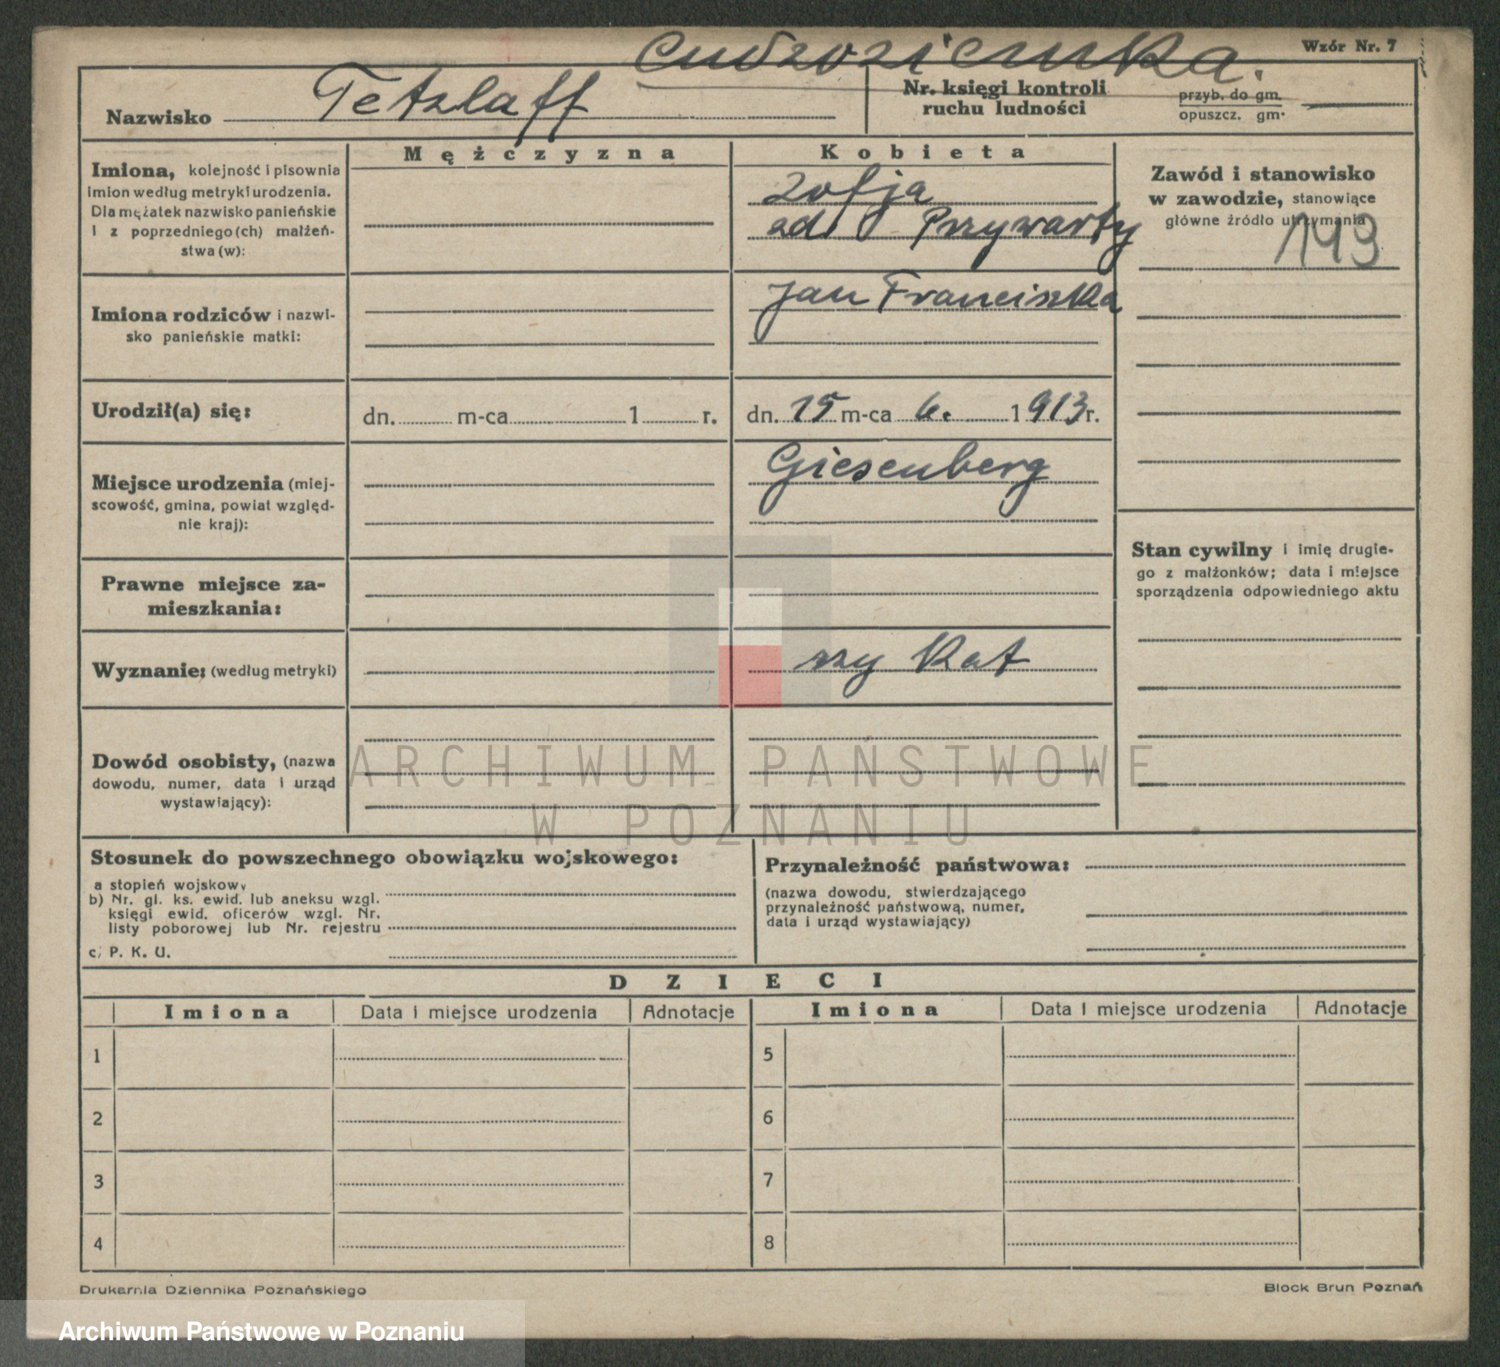 cudzoziemka.
Wzór Nr. 7
Nazwisko Tetzlaff
Nr. księgi kontroli
ruchu ludności
przyb. do gm.
opuszcz. gm.
Mężczyzna
Kobieta
Imiona, kolejność i pisownia
imion według metryki urodzenia.
Dla mężatek nazwisko panieńskie
i z poprzedniego (ch) małżeń-
stwa (w):
Zofja
zd. Przywarty
Zawód i stanowisko
w zawodzie, stanowiące
główne źródło utrzymania
149
Imiona rodziców i nazwi-
sko panieńskie matki:
Jan Franciszka
Urodził(a) się:
dn. m-ca 1 r.
dn. 15 m-ca 6. 1913 r.
Miejsce urodzenia (miej-
scowość, gmina, powiat względ-
nie kraj):
Giesenberg
Prawne miejsce za-
mieszkania:
Stan cywilny i imię drugie-
go z małżonków; data i miejsce
sporządzenia odpowiedniego aktu
Wyznanie: (według metryki)
rzy kat
Dowód osobisty, (nazwa
dowodu, numer, data i urząd
wystawiający):
ARCHIWUM PAŃSTWOWE
W POZNANIU
Stosunek do powszechnego obowiązku wojskowego:
a stopień wojskowy
b) Nr. gł. ks. ewid. lub aneksu wzgl.
księgi ewid. oficerów wzgl. Nr.
listy poborowej lub Nr. rejestru
c) P. K. U.
Przynależność państwowa:
(nazwa dowodu, stwierdzającego
przynależność państwową, numer,
data i urząd wystawiający)
DZIECI
Imiona Data i miejsce urodzenia Adnotacje Imiona Data i miejsce urodzenia Adnotacje
1 5
2 6
3 7
4 8
Drukarnia Dziennika Poznańskiego
Block Brun Poznań
Archiwum Państwowe w Poznaniu